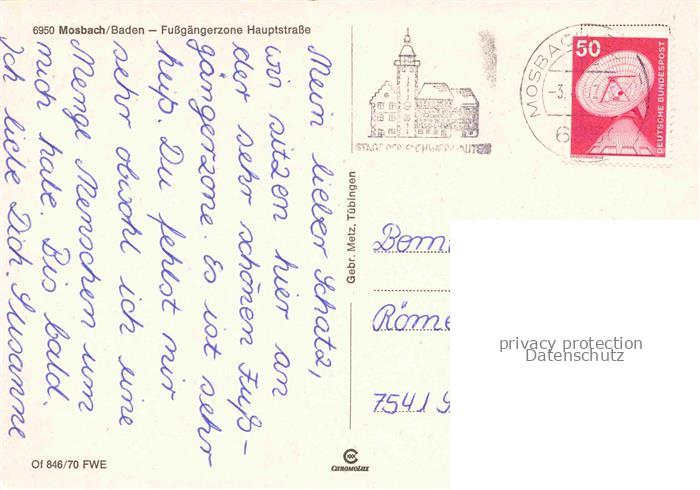 6950 Mosbach/Baden – Fußgängerzone Hauptstraße
Mein lieber Schatz,
wir sitzen hier an
der sehr schönen Fuß-
gängerzone. Es ist sehr
heiß. Du fehlst mir
sehr obwohl ich eine
Menge Menschen um
mich habe. Bis bald.
Ich liebe Dich. Susanne
Of 846/70 FWE
Gebr. Metz, Tübingen
CHROMOLUX
STADT DER FACHWERKBAUTEN
MOSBACH
-3.
6
50
DEUTSCHE BUNDESPOST
Röme
7541
privacy protection
Datenschutz